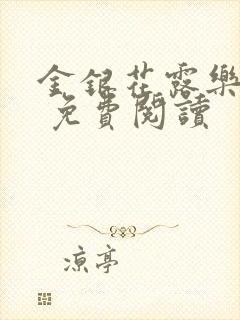 金銀花露樂
免費閱讀
涼亭